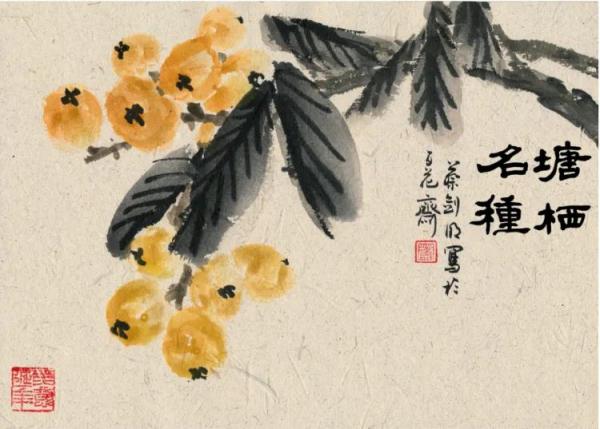 塘栖
名種
蔡剑明寫於
百花齋